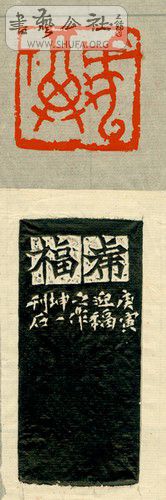 書藝公社
WWW.SHUFA.ORG
虎福
庚寅
迎福
之作
坤一
刊石